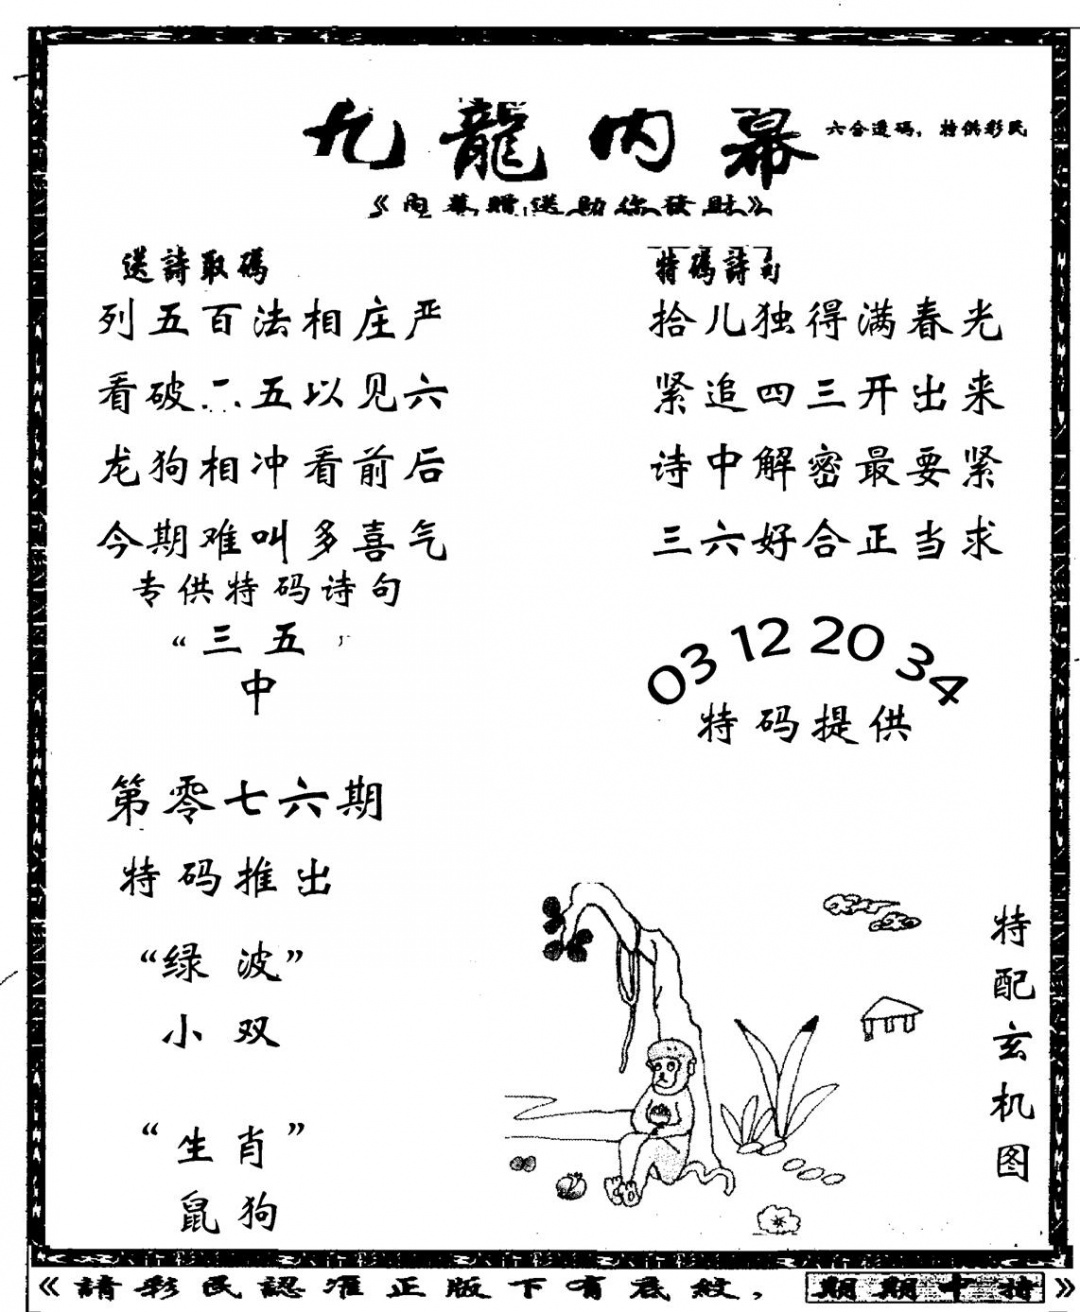 九龍内幕
六合透码，特供彩民
《内幕赠送助你發財》
送詩取碼
列五百法相庄严
看破二五以见六
龙狗相冲看前后
今期难叫多喜气
专供特码诗句
“三五
中
第零七六期
特码推出
“绿波”
小双
“生肖”
鼠狗
特碼詩句
拾儿独得满春光
紧追四三开出来
诗中解密最要紧
三六好合正当求
03 12 20 34
特码提供
特配玄机图
《請彩民認准正版下有底紋，期期中特》